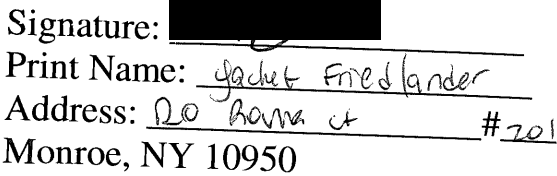 Signature:
Print Name: Yachet Friedlander
Address: 20 Ct #201
Monroe, NY 10950